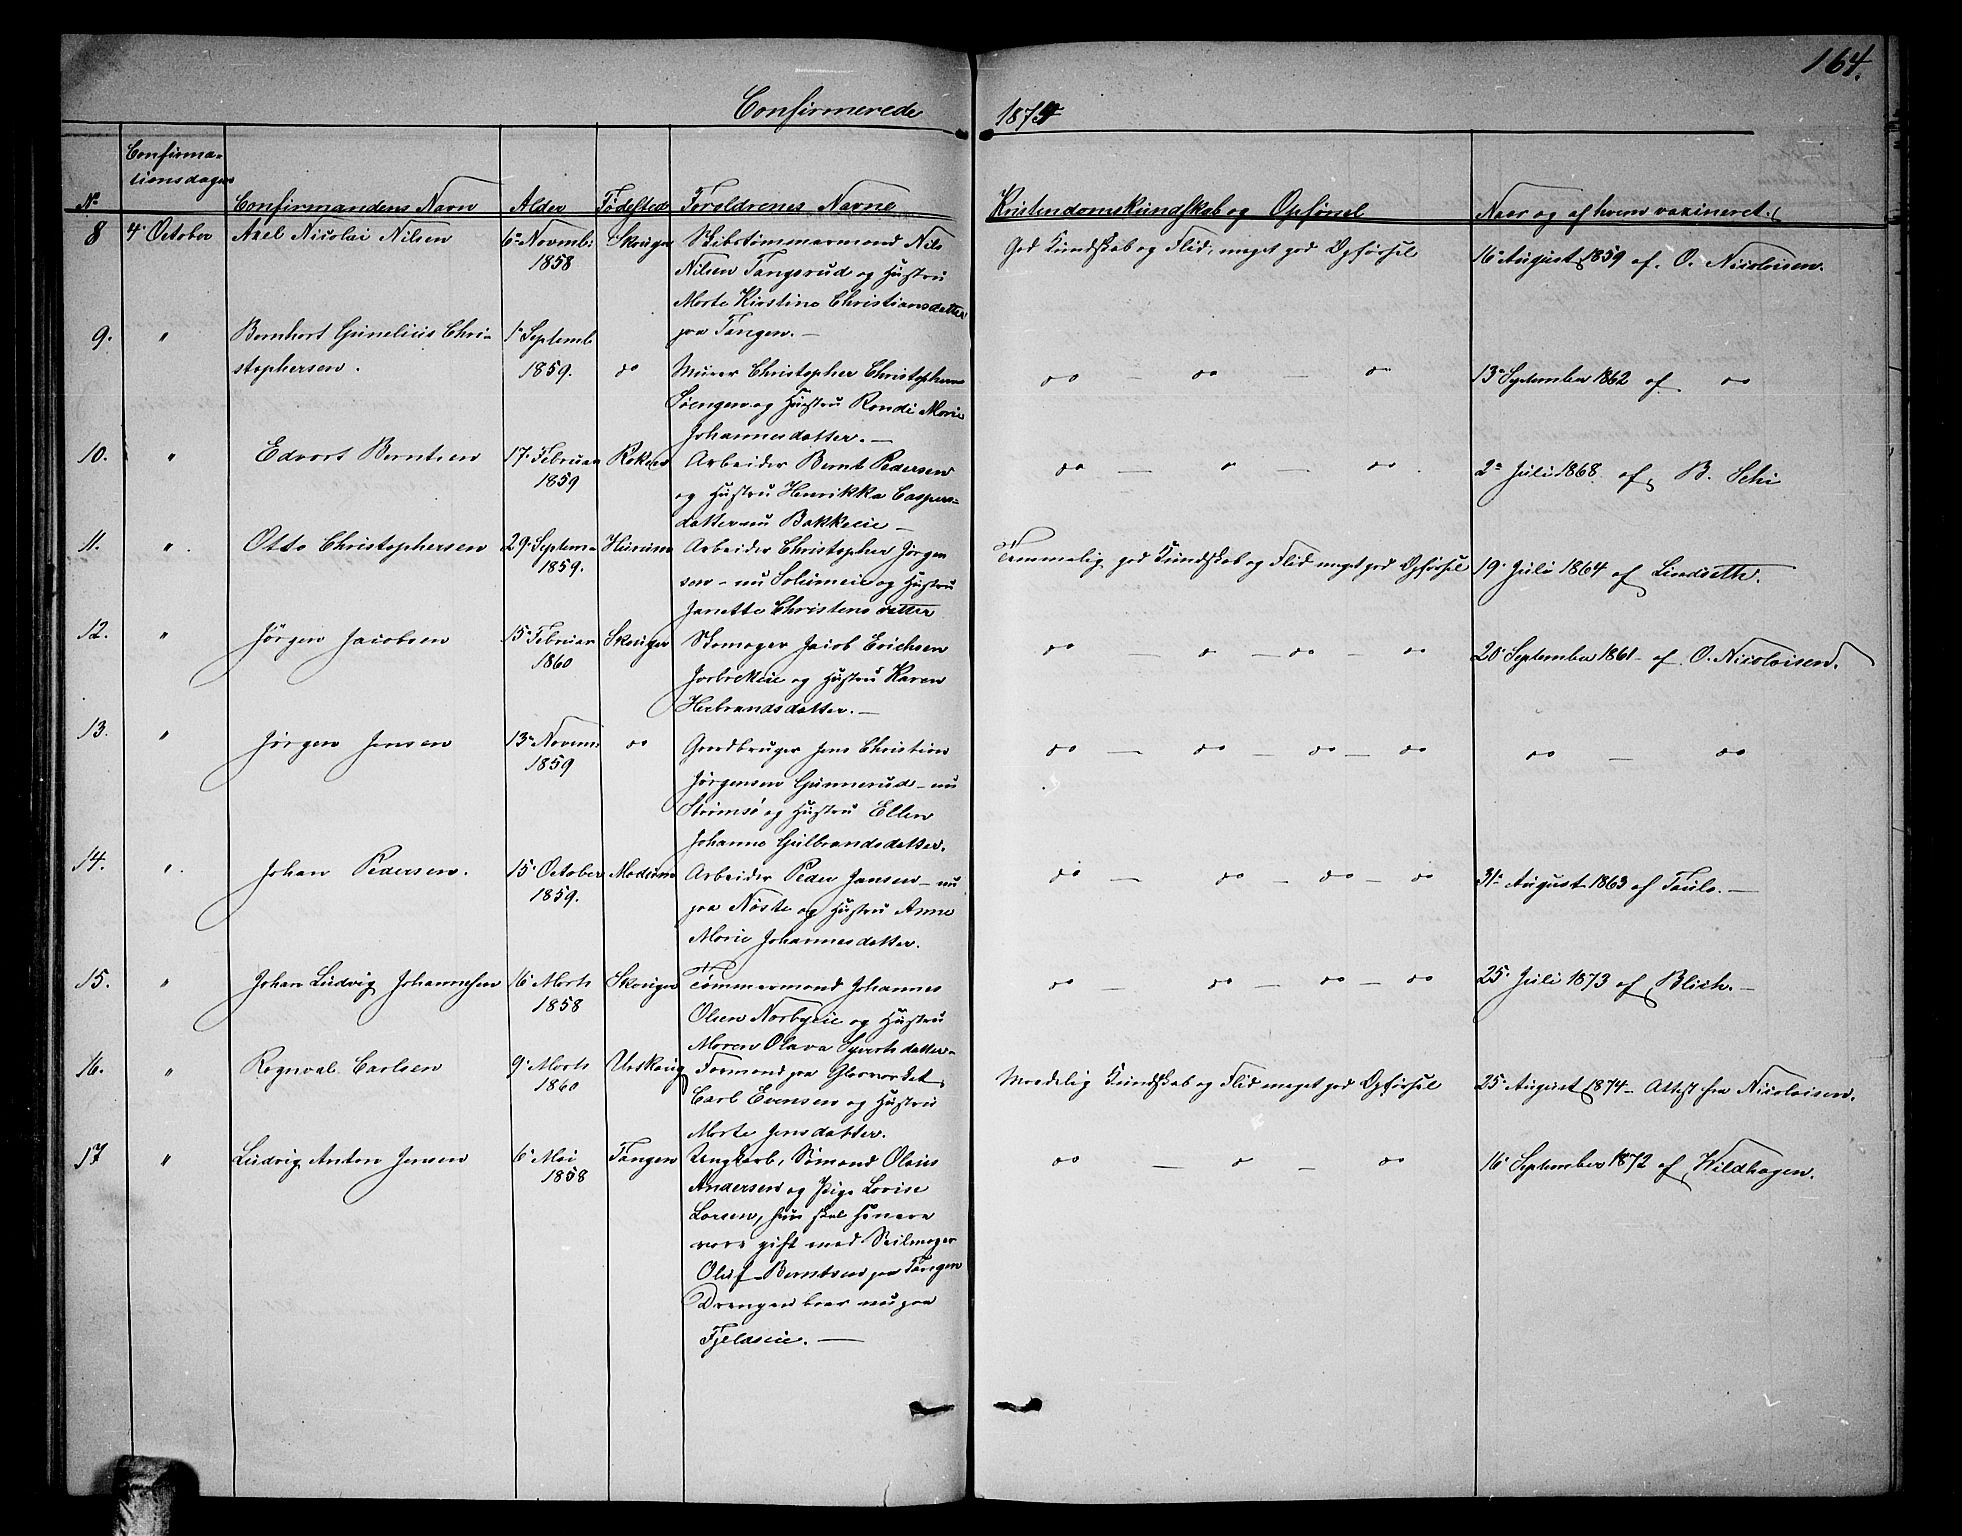 164.
Confirmerede 1874
No
Confirma-
tionsdagen
Confirmandens Navn
Alder
Födested
Foreldrenes Navne
Kristendomskundskab og Opførsel
Naar og af hvem vaxineret.
8 4de October Axel Nicolai Nilsen 6te Novembr 1858 Skouger
Skibstømmermand Nils
Nilsen Tangsrud og Hustru
Marte Kirstine Christiansdatter
paa Tangen. —
God Kundskab og Flid, meget god Opførsel
16de August 1859 af O. Nicolaisen.
9. " Bernhart Gunelius Chri-
stophersen.
1te Septemb
1859. do
Murer Christopher Christophersen
Søengen og Hustru Randi Marie
Johannesdatter. —
do — do — do
13de September 1862 af do
10. " Edvart Berntsen 17de Februar
1859 Røken
Arbeider Bernt Pedersen
og Hustru Henrikka Caspers-
datter nu Bakkeeie —
do — do — do
2den Juli 1868 af B. Schi
11. " Otto Christophersen 29de Septem-
1859. Hurum
Arbeider Christopher Jørgen
sen — nu Solumeie og Hustru
Janette Christensdatter
Temmelig god Kundskab og Flid meget god Opførsel
19de Juli 1864 af Lindseth.
12. " Jørgen Jacobsen 15de Februar
1860 Skouger
Skomager Jacob Erichsen
Jarbrekeie og Hustru Karen
Herbrandsdatter. —
do — do — do — do
20de September 1861 — af O. Nicolaisen.
13. " Jørgen Jensen 13de Novem
1859 do
Gaardbruger Jens Christian
Jørgensen Gunnerud — nu
Strømsø og Hustru Ellen
Johanne Gulbrandsdatter.
do — do — do — do
do — do
14. " Johan Pedersen. 15de October
1859. Modum
Arbeider Peder Jansen — nu
paa Nøste og Hustru Anne
Marie Johannesdatter.
do — do — do — do
31te August 1863 af Taule. —
15. " Johan Ludvig Johannesen 16de Marts
1858 Skouger
Tømmermand Johannes
Olsen Norbyeie og Hustru
Maren Olava Syvertsdatter
do — do — do — do
25de Juli 1873 af Blich. —
16. " Ragnval Carlsen 9de Marts
1860 Urskoug
Formand paa Glasværket
Carl Evensen og Hustru
Marte Jensdatter.
Maadelig Kundskab og Flid meget god Opførsel
25de August 1874 — Attest fra Nicolaisen.
17 " Ludvig Anton Jensen 6te Mai
1858 Tangen
Ungkarl, Sømand Olaus
Andersen og Pige Lovise
Larsen, hun skal senere
være gift med Seilmager
Oluf Berntsen paa Tangen
Drengen boer nu paa
Fjeldseie. —
do — do — do
16de September 1872 af Wildhagen.